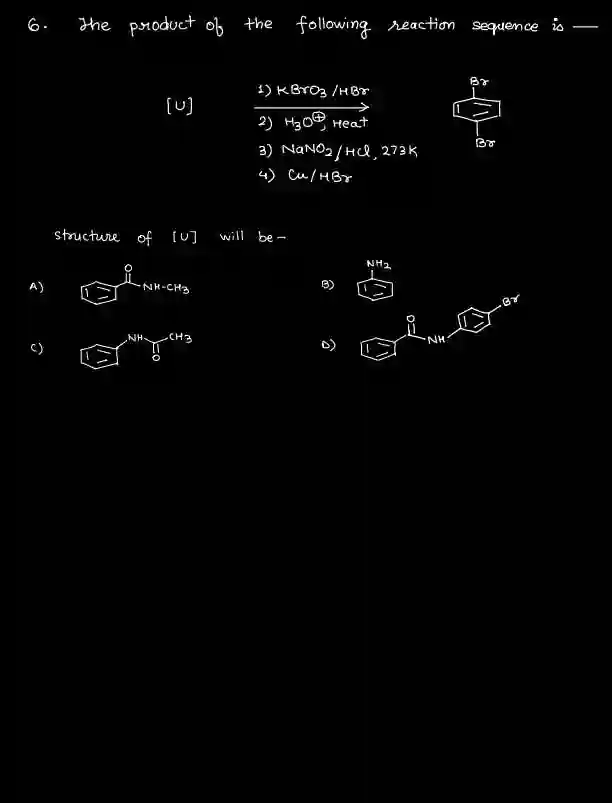 6. The product of the following reaction sequence is —
[U]
1) KBrO3 /HBr
2) H3O⊕, Heat
3) NaNO2/HCl, 273K
4) Cu/HBr
Br
Br
structure of [U] will be -
A)
O
NH-CH3
B)
NH2
C)
NH
CH3
O
D)
O
NH
Br